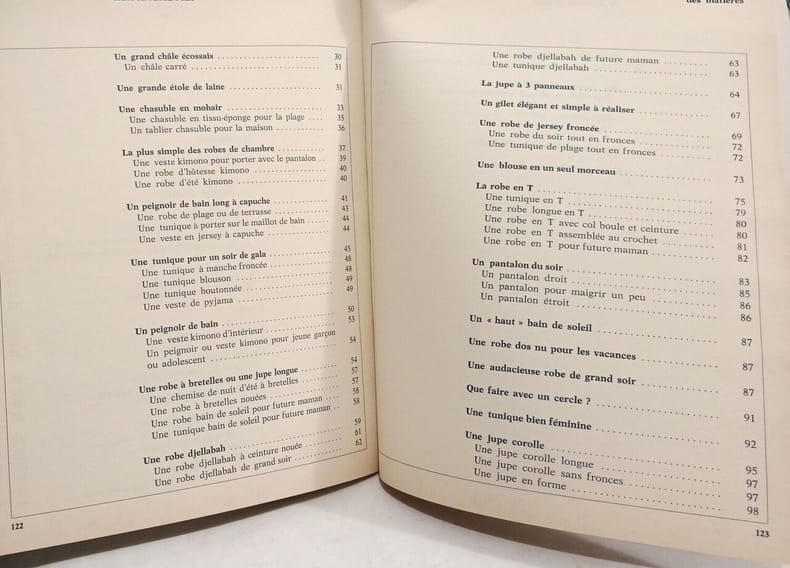 Un grand châle écossais 30
Un châle carré 31
Une grande étole de laine 31
Une chasuble en mohair 33
Une chasuble en tissu-éponge pour la plage 35
Un tablier chasuble pour la maison 36
La plus simple des robes de chambre 37
Une veste kimono pour porter avec le pantalon 39
Une robe d'hôtesse kimono 40
Une robe d'été kimono 40
Un peignoir de bain long à capuche 41
Une robe de plage ou de terrasse 43
Une tunique à porter sur le maillot de bain 44
Une veste en jersey à capuche 44
Une tunique pour un soir de gala 45
Une tunique à manche froncée 48
Une tunique blouson 48
Une tunique boutonnée 49
Une veste de pyjama 49
Un peignoir de bain 50
Une veste kimono d'intérieur 53
Un peignoir ou veste kimono pour jeune garçon
ou adolescent 54
Une robe à bretelles ou une jupe longue 54
Une chemise de nuit d'été à bretelles 57
Une robe à bretelles nouées 57
Une robe bain de soleil pour future maman 58
Une tunique bain de soleil pour future maman 58
Une robe djellabah 59
Une robe djellabah à ceinture nouée 61
Une robe djellabah de grand soir 62
122
des matières
Une robe djellabah de future maman 63
Une tunique djellabah 63
La jupe à 3 panneaux 64
Un gilet élégant et simple à réaliser 67
Une robe de jersey froncée 69
Une robe du soir tout en fronces 72
Une tunique de plage tout en fronces 72
Une blouse en un seul morceau 73
La robe en T 75
Une tunique en T 79
Une robe longue en T 80
Une robe en T avec col boule et ceinture 80
Une robe en T assemblée au crochet 81
Une robe en T pour future maman 82
Un pantalon du soir 83
Un pantalon droit 85
Un pantalon pour maigrir un peu 86
Un pantalon étroit 86
Un « haut » bain de soleil 87
Une robe dos nu pour les vacances 87
Une audacieuse robe de grand soir 87
Que faire avec un cercle ? 91
Une tunique bien féminine 92
Une jupe corolle 95
Une jupe corolle longue 97
Une jupe corolle sans fronces 97
Une jupe en forme 98
123